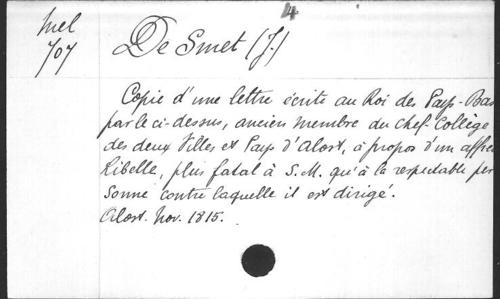 4
Mel
707
De Smet (J.)
Copie d'une lettre écrite au Roi des Pays-Bas
par le ci-dessus, ancien membre du Chef-Collège
des deux Villes et Pays d'Alost, à propos d'un affreux
Libelle, plus fatal à S. M. qu'à la respectable per
sonne contre laquelle il est dirigé.
Alost. Nov. 1815.